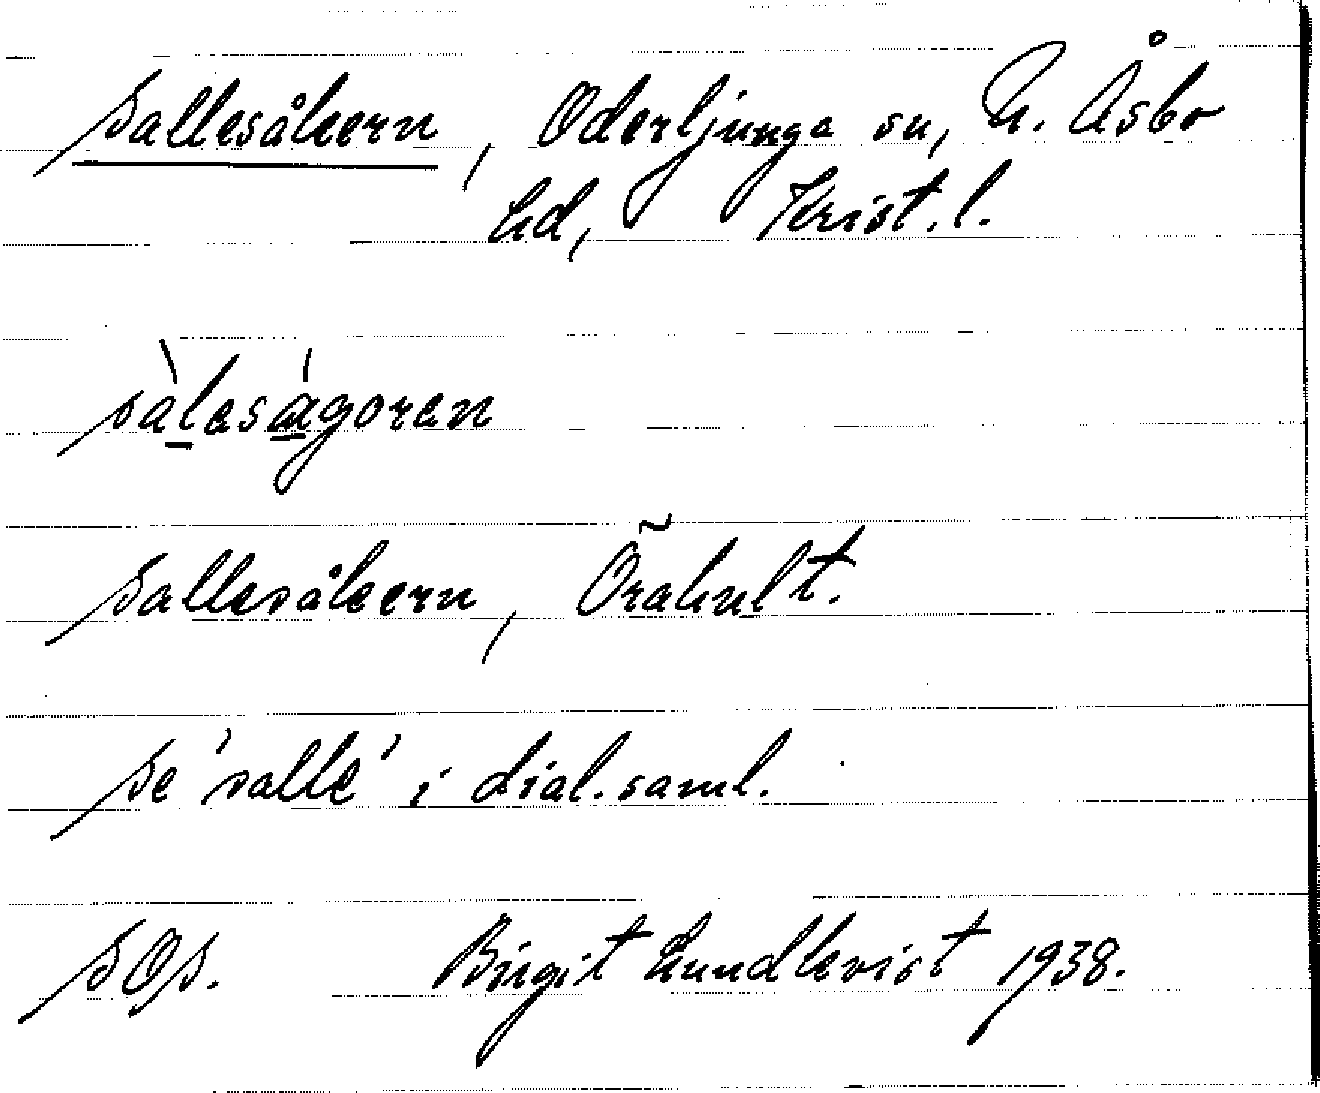 Sallesåkern, Oderljunga sn, N. Åsbo
hd, Krist. l.
sàleságoren
Sallesåkern, Örahult.
Se 'salle' i dial. saml.
SOS. Birgit Lundkvist 1938.